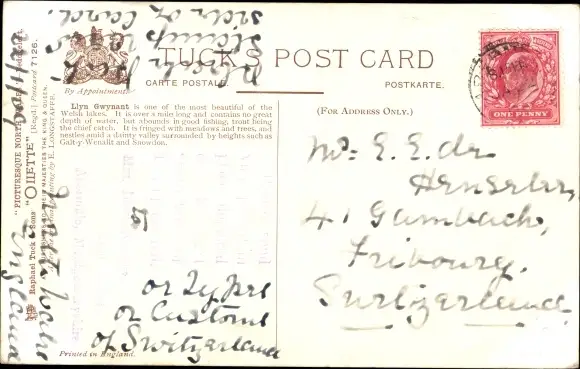 TUCK'S POST CARD
CARTE POSTALE.
POSTKARTE.
By Appointment.
(FOR ADDRESS ONLY.)
Llyn Gwynant is one of the most beautiful of the
Welsh lakes. It is over a mile long and contains no great
depth of water, but abounds in good fishing, trout being
the chief catch. It is fringed with meadows and trees, and
nestles amid a dainty valley surrounded by heights such as
Gallt-y-Wenallt and Snowdon.
"PICTURESQUE NORTH
Raphael Tuck & Sons "OILETTE" [Regd.] Postcard 7126.
THEIR MAJESTIES THE KING & QUEEN.
by E. LONGSTAFFE.
Printed in England.
ONE PENNY
Mr. E. E. de
41 Gambach,
Fribourg.
Switzerland
stamp
side of card.
or Types
or Customs
of Switzerland
England